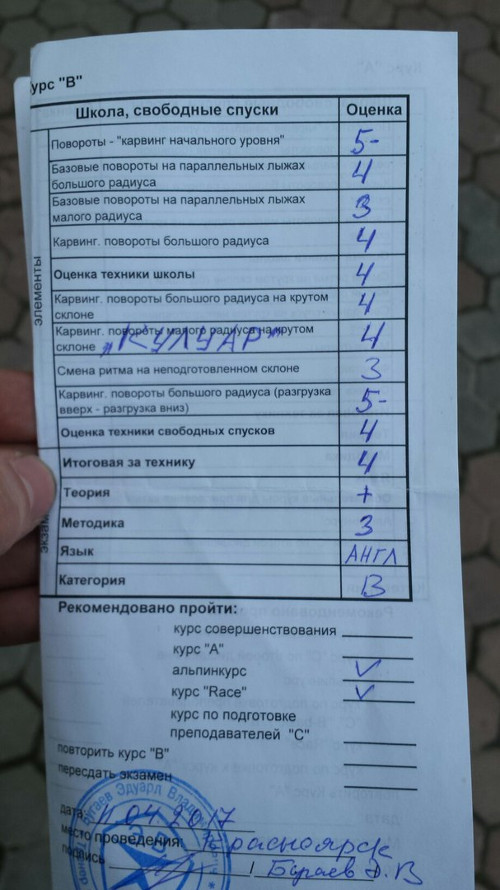 урс "В"
Школа, свободные спуски Оценка
элементы
Повороты - "карвинг начального уровня" 5-
Базовые повороты на параллельных лыжах
большого радиуса 4
Базовые повороты на параллельных лыжах
малого радиуса 3
Карвинг. повороты большого радиуса 4
Оценка техники школы 4
Карвинг. повороты большого радиуса на крутом
склоне 4
Карвинг. повороты малого радиуса на крутом
склоне „КУЛУАР" 4
Смена ритма на неподготовленном склоне 3
Карвинг. повороты большого радиуса (разгрузка
вверх - разгрузка вниз) 5-
Оценка техники свободных спусков 4
Итоговая за технику 4
экза
Теория +
Методика 3
Язык АНГЛ
Категория В
Рекомендовано пройти:
курс совершенствования
курс "А"
альпинкурс ✓
курс "Race" ✓
курс по подготовке
преподавателей "С"
повторить курс "В"
пересдать экзамен
Бугаев Эдуард Влад
дата: 11.04.2017
место проведения: Красноярск
подпись / Бугаев Э.В